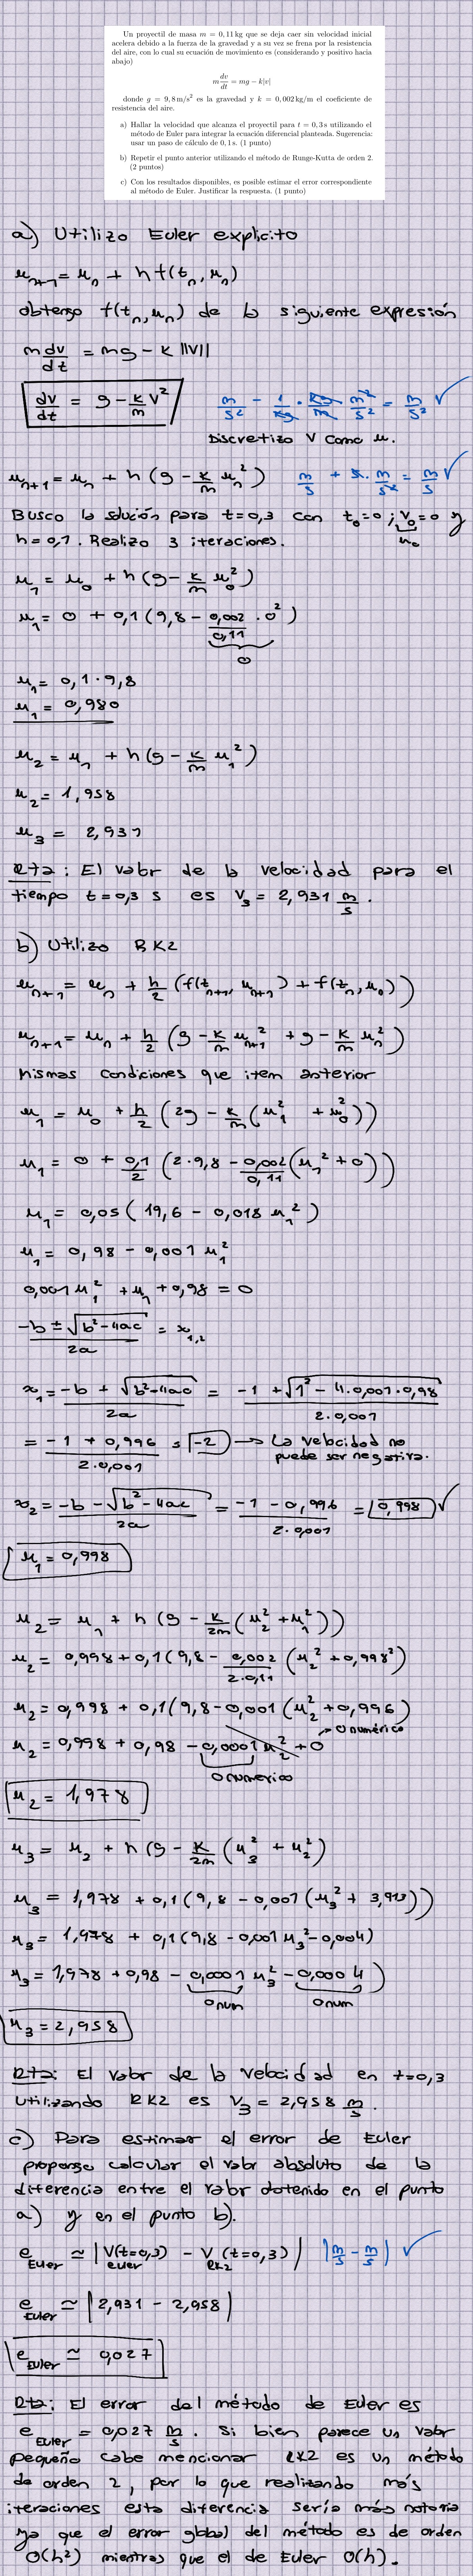 Un proyectil de masa m = 0,11 kg que se deja caer sin velocidad inicial
acelera debido a la fuerza de la gravedad y a su vez se frena por la resistencia
del aire, con lo cual su ecuación de movimiento es (considerando y positivo hacia
abajo)
m dv/dt = mg − k|v|
donde g = 9,8 m/s² es la gravedad y k = 0,002 kg/m el coeficiente de
resistencia del aire.
a) Hallar la velocidad que alcanza el proyectil para t = 0,3 s utilizando el
método de Euler para integrar la ecuación diferencial planteada. Sugerencia:
usar un paso de cálculo de 0,1 s. (1 punto)
b) Repetir el punto anterior utilizando el método de Runge-Kutta de orden 2.
(2 puntos)
c) Con los resultados disponibles, es posible estimar el error correspondiente
al método de Euler. Justificar la respuesta. (1 punto)
a) Utilizo Euler explícito
u_{n+1} = u_n + h f(t_n, u_n)
obtengo f(t_n, u_n) de la siguiente expresión
m dv/dt = mg - k ||v||
dv/dt = g - k/m v² m/s² - 1/kg · kg/m m²/s² = m/s² ✓
Discretizo v como u.
u_{n+1} = u_n + h (g - k/m u_n²) m/s + s · m/s² = m/s ✓
Busco la solución para t = 0,3 con t_0 = 0 ; v_0 = 0 y
u_0
h = 0,1. Realizo 3 iteraciones.
u_1 = u_0 + h (g - k/m u_0²)
u_1 = 0 + 0,1 (9,8 - 0,002/0,11 · 0²)
0
u_1 = 0,1 · 9,8
u_1 = 0,980
u_2 = u_1 + h (g - k/m u_1²)
u_2 = 1,958
u_3 = 2,931
Rta: El valor de la velocidad para el
tiempo t = 0,3 s es V_3 = 2,931 m/s.
b) Utilizo RK2
u_{n+1} = u_n + h/2 (f(t_{n+1}, u_{n+1}) + f(t_n, u_n))
u_{n+1} = u_n + h/2 (g - k/m u_{n+1}² + g - k/m u_n²)
mismas condiciones que item anterior
u_1 = u_0 + h/2 (2g - k/m (u_1² + u_0²))
u_1 = 0 + 0,1/2 (2·9,8 - 0,002/0,11 (u_1² + 0))
u_1 = 0,05 (19,6 - 0,018 u_1²)
u_1 = 0,98 - 0,001 u_1²
0,001 u_1² + u_1 + 0,98 = 0
-b ± √(b² - 4ac) / 2a = x_{1,2}
x_1 = -b + √(b² - 4ac) / 2a = -1 + √(1² - 4·0,001·0,98) / 2·0,001
= -1 + 0,996 / 2·0,001 = -2 → La velocidad no
puede ser negativa.
x_2 = -b - √(b² - 4ac) / 2a = -1 - 0,996 / 2·0,001 = 0,998 ✓
u_1 = 0,998
u_2 = u_1 + h (g - k/2m (u_2² + u_1²))
u_2 = 0,998 + 0,1 (9,8 - 0,002/2·0,11 (u_2² + 0,998²)
u_2 = 0,998 + 0,1 (9,8 - 0,001 (u_2² + 0,996)
0 numérico
u_2 = 0,998 + 0,98 - 0,0001 u_2² + 0
0 numerico
u_2 = 1,978
u_3 = u_2 + h (g - k/2m (u_3² + u_2²)
u_3 = 1,978 + 0,1 (9,8 - 0,001 (u_3² + 3,913))
u_3 = 1,978 + 0,1 (9,8 - 0,001 u_3² - 0,004)
u_3 = 1,978 + 0,98 - 0,0001 u_3² - 0,0004)
0 num 0 num
u_3 = 2,958
Rta: El valor de la velocidad en t = 0,3
utilizando RK2 es V_3 = 2,958 m/s.
c) Para estimar el error de Euler
propongo calcular el valor absoluto de la
diferencia entre el valor obtenido en el punto
a) y en el punto b).
e_Euler ≃ |V_euler(t=0,3) - V_RK2(t=0,3)| |m/s - m/s| ✓
e_Euler ≃ |2,931 - 2,958|
e_Euler ≃ 0,027
Rta: El error del método de Euler es
e_Euler = 0,027 m/s. Si bien parece un valor
pequeño cabe mencionar RK2 es un método
de orden 2, por lo que realizando más
iteraciones esta diferencia sería más notoria
ya que el error global del método es de orden
O(h²) mientras que el de Euler O(h).